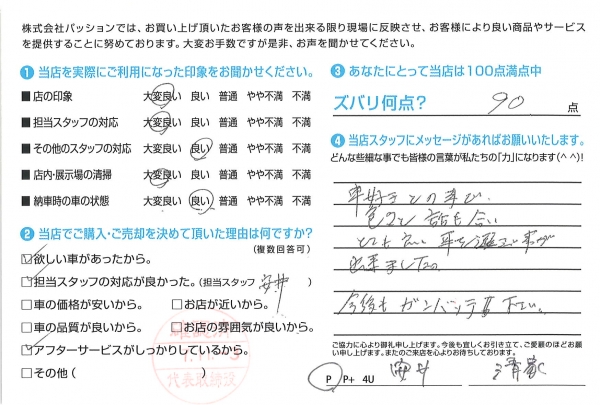 株式会社パッションでは、お買い上げ頂いたお客様の声を出来る限り現場に反映させ、お客様により良い商品やサービス
を提供することに努めております。大変お手数ですが是非、お声を聞かせてください。
1 当店を実際にご利用になった印象をお聞かせください。
■店の印象 大変良い 良い 普通 やや不満 不満
■担当スタッフの対応 大変良い 良い 普通 やや不満 不満
■その他のスタッフの対応 大変良い 良い 普通 やや不満 不満
■店内・展示場の清掃 大変良い 良い 普通 やや不満 不満
■納車時の車の状態 大変良い 良い 普通 やや不満 不満
2 当店でご購入・ご売却を決めて頂いた理由は何ですか?
(複数回答可)
☑欲しい車があったから。
☑担当スタッフの対応が良かった。(担当スタッフ 安井 )
□車の価格が安いから。 □お店が近いから。
□車の品質が良いから。 □お店の雰囲気が良いから。
☑アフターサービスがしっかりしているから。
□その他 ( )
代表取締役
3 あなたにとって当店は100点満点中
ズバリ何点? 90 点
4 当店スタッフにメッセージがあればお願いいたします。
どんな些細な事でも皆様の言葉が私たちの「力」になります(^ ^)!
車好きとの事で、
色々と話も合い
とても良い車を選ぶ事が
出来ました。
今後もガンバッテ下さい。
ご協力に心より御礼申し上げます。今後も宜しくお引き立て、ご愛顧のほどお願
い申し上げます。またのご来店を心よりお待ちしております。
P P+ 4U 安井